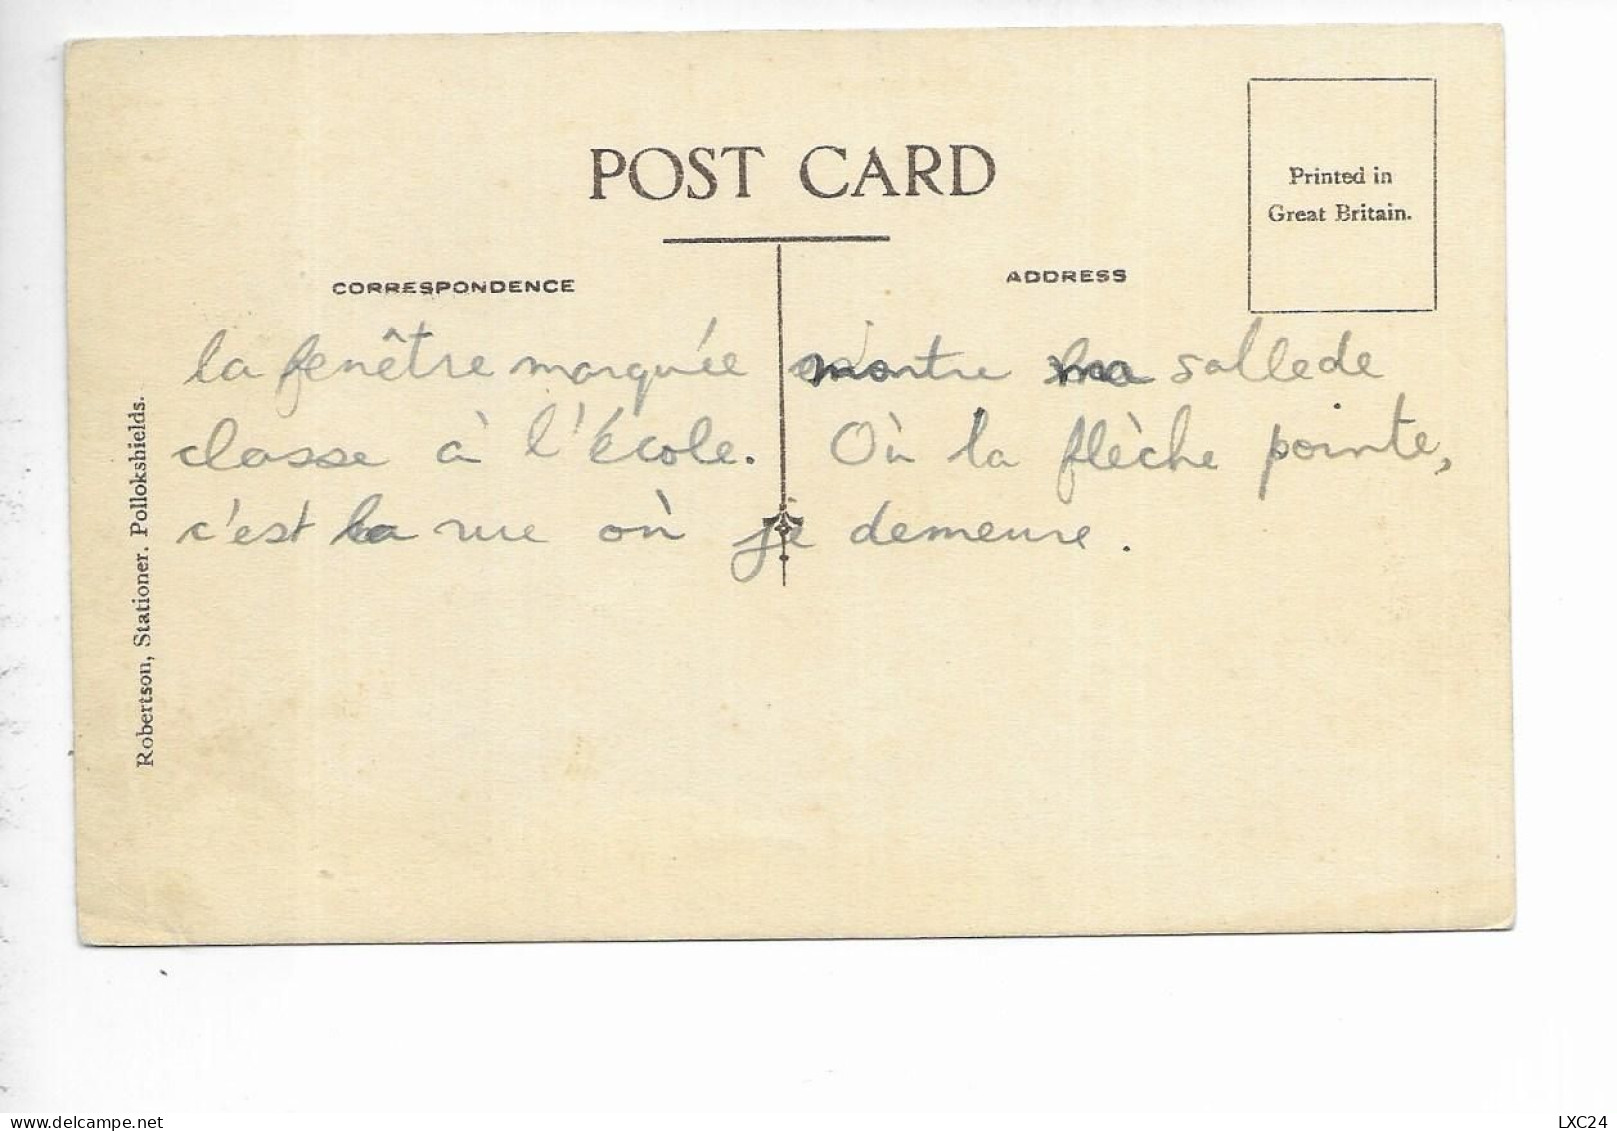 POST CARD
Printed in
Great Britain.
CORRESPONDENCE
ADDRESS
la fenêtre marquée montre ma salle de
classe à l'école. Où la flèche pointe,
c'est la rue où je demeure.
Robertson, Stationer. Pollokshields.
LXC24